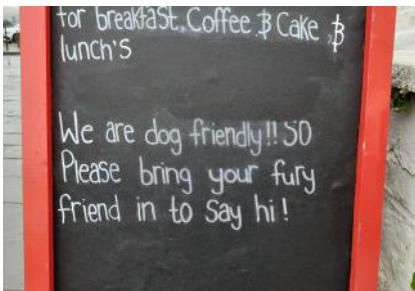 for breakfast, Coffee & Cake &
lunch's
We are dog friendly!! SO
Please bring your fury
friend in to Say hi!